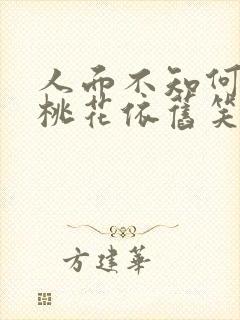 人而不知何
桃花依舊笑
方建華